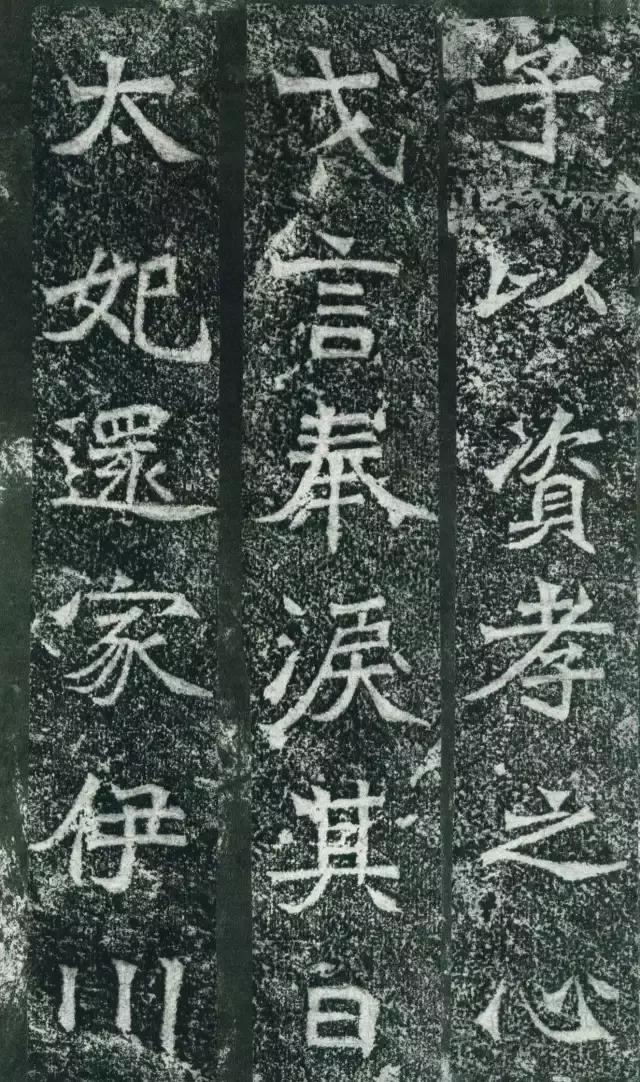 子以資孝之心
戈言奉淚其日
太妃還家伊川